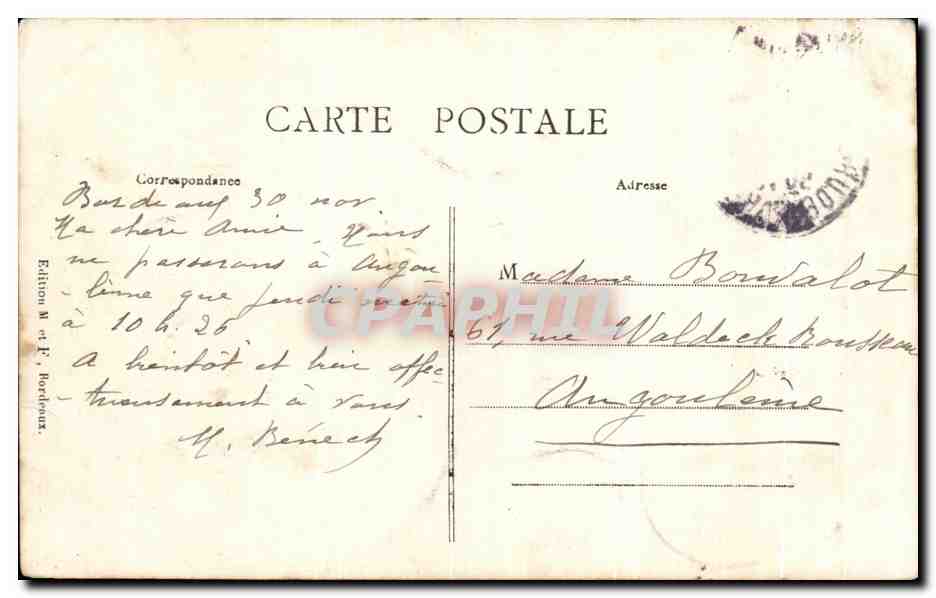 CARTE POSTALE
Correspondance
Bordeaux 30 nov
Ma chère Amie. Nous
ne passerons à Angou
-lême que jeudi matin
à 10 h. 26
A bientôt et bien affec-
-tueusement à vous.
M. Bénech
Edition M et F, Bordeaux.
Adresse
Madame Bonvalot
61, rue Waldeck Rousseau
Angoulême
CPAPHIL